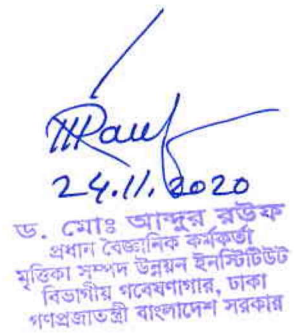 24.11.2020
ড. মোঃ আব্দুর রউফ
প্রধান বৈজ্ঞানিক কর্মকর্তা
মৃত্তিকা সম্পদ উন্নয়ন ইনস্টিটিউট
বিভাগীয় গবেষণাগার, ঢাকা
গণপ্রজাতন্ত্রী বাংলাদেশ সরকার